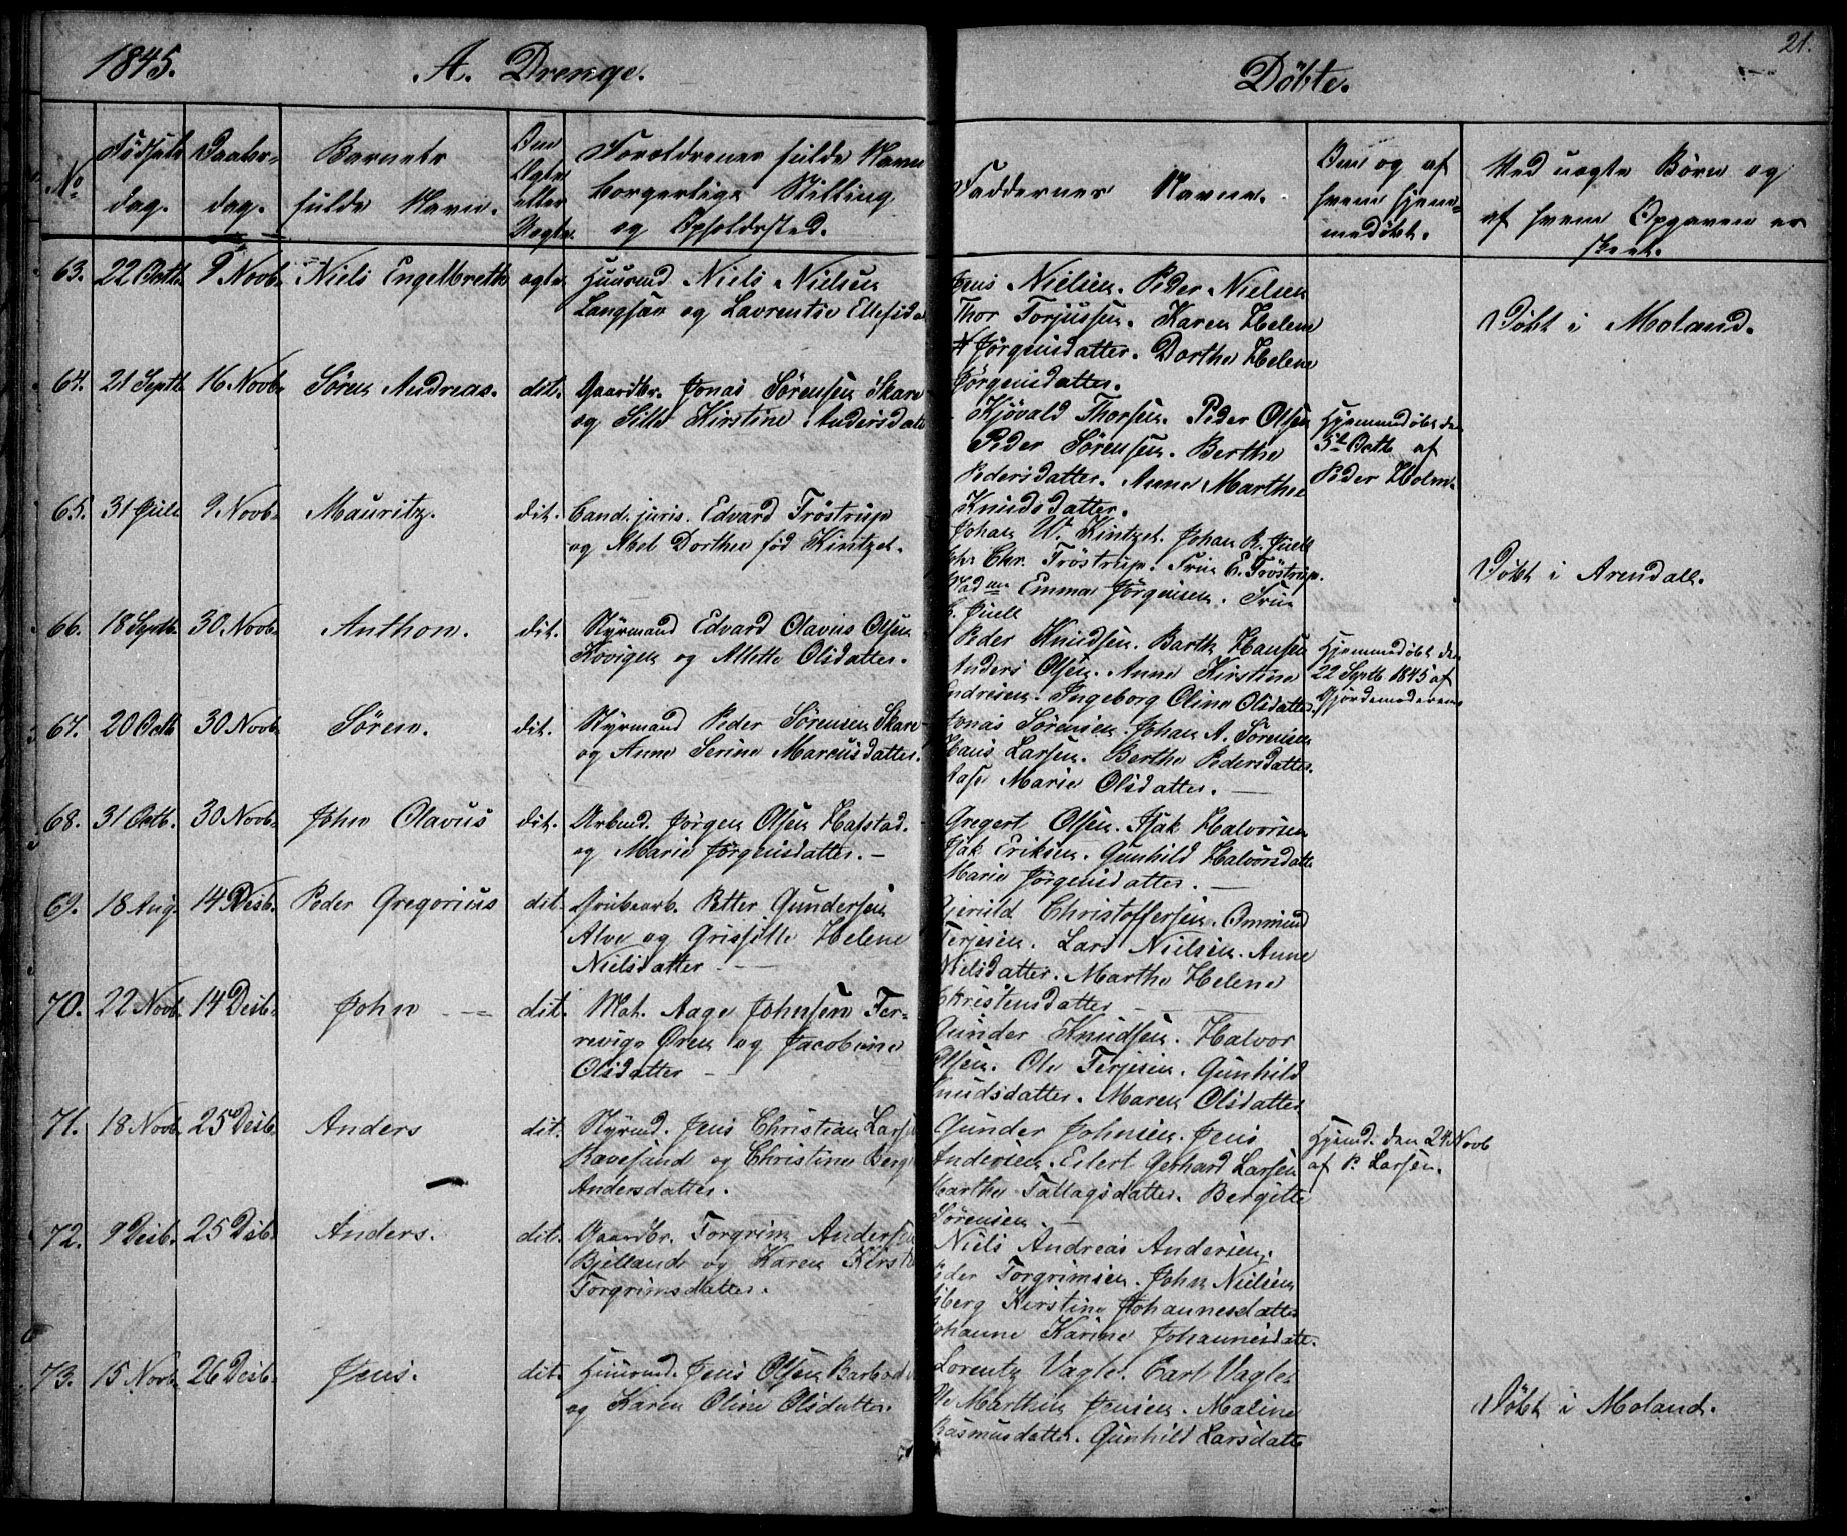 1845.
A. Drenge.
Döbte.
21.
No
Födsels dag.
Daabs- dag.
Barnets fulde Navn.
Om Ægte eller Uægte.
Forældrenes fulde Navn
borgerlige Stilling
og Opholdssted.
Faddernes Navne.
Om og af
hvem hjem-
medöbt.
Ved uægte Börn og
af hvem Opgaven er
skeet.
63. 22 Octb. 9 Novb. Niels Engelbreth ægte Huusmd Niels Nielsen
Langsæv og Laurentse Ellefsda
Jens Nielsen. Peder Nielsen
Thor Torjussen. Karen Helene
Jörgensdatter. Dorthe Helene
Jörgensdatter.
Döbt i Moland.
64. 21 Septb. 16 Novb. Sören Andreas. dit. Gaardbr. Jonas Sörensen Skare
og Sille Kirstine Andersdatt
Kjövald Thorsen. Peder Olsen
Peder Sörensen. Berthe
Pedersdatter. Anne Marthe
Knudsdatter.
Hjemmedöbt den
5t Octb. af
Peder Holm.
65. 31 Juli 9 Novb. Mauritz. dit. Cand. juris. Edvard Tröstrup
og Abel Dorthea född Kintzel.
Johan W. Kintzel. Johan R. Juell
Chr. Tröstrup. Frue E. Tröstrup.
Mad me Emma Jörgensen. Frue
Juell
Döbt i Arendall.
66. 18 Septb. 30 Novb. Anthon. dit. Styrmand Edvard Olavus Olsen
Kovigen og Allette Olsdatter.
Peder Knudsen. Barth Hansen
Anders Olsen. Anne Kirstine
Andresen. Ingeborg Oline Olsdatter.
Hjemmedöbt den
22 Septb 1845 af
Gjordemoderen
67. 20 Octb 30 Novb. Sören. dit. Styrmand Peder Sörensen Skare
og Anne Serine Marcusdatter.
Jonas Sörensen. Johan A. Sörensen
Hans Larsen. Berthe Pedersdatter.
Aase Marie Olsdatter. —
68. 31 Octb. 30 Novb. John Olavus dit. Arbmd. Jörgen Olsen Hafstad.
og Marie Jörgensdatter. —
Gregert Olsen. Isak Halvorsen
Isak Eriksen. Gunhild Halvorsdatt
Marie Jörgensdatter. —
69. 18 Aug. 14 Desb. Peder Gregorius dit. Grubearb. Petter Gundersen
Alve og Grissille Helene
Nielsdatter —
Gjeruld Christoffersen. Ommund
Terjesen. Lars Nielsen. Anne
Nielsdatter. Marthe Helene
Christensdatter —
70. 22 Novb. 14 Desb. John — dit. Mat. Aage Johnsen Fer-
revigs Ören og Jacobine
Olsdatter —
Gunder Knudsen. Halvor
Olsen. Ole Terjesen. Gunhild
Knudsdatter. Maren Olsdatter
71. 18 Novb. 25 Desb. Anders dit. Styrmd. Jens Christian Larsen
Ravesand og Christine Berg
Andersdatter.
Gunder Johnsen. Jens
Andersen. Eilert Gerhard Larsen
Marthe Tallagsdatter. Bergitte
Sörensen. —
Hjemd. den 24 Novb
af P. Larsen.
72. 9 Desb. 25 Desb. Anders. dit. Gaardbr. Torgrim Andersen
Bjelland og Karen Kirst
Torgrimsdatter.
Niels Andreas Andersen.
Peder Torgrimsen. John Nielsen
Kirstine Johannesdatter
Johanne Karine Johannesdatt.
73. 15 Novb. 26 Desb. Jens. dit. Huusmd. Jens Olsen Barbod
og Karen Oline Olsdatter.
Lorentz Vagle. Carl Vagle.
Ole Marthin Jensen. Maline
Rasmusdatter. Gunhild Larsdatt
Döbt i Moland.